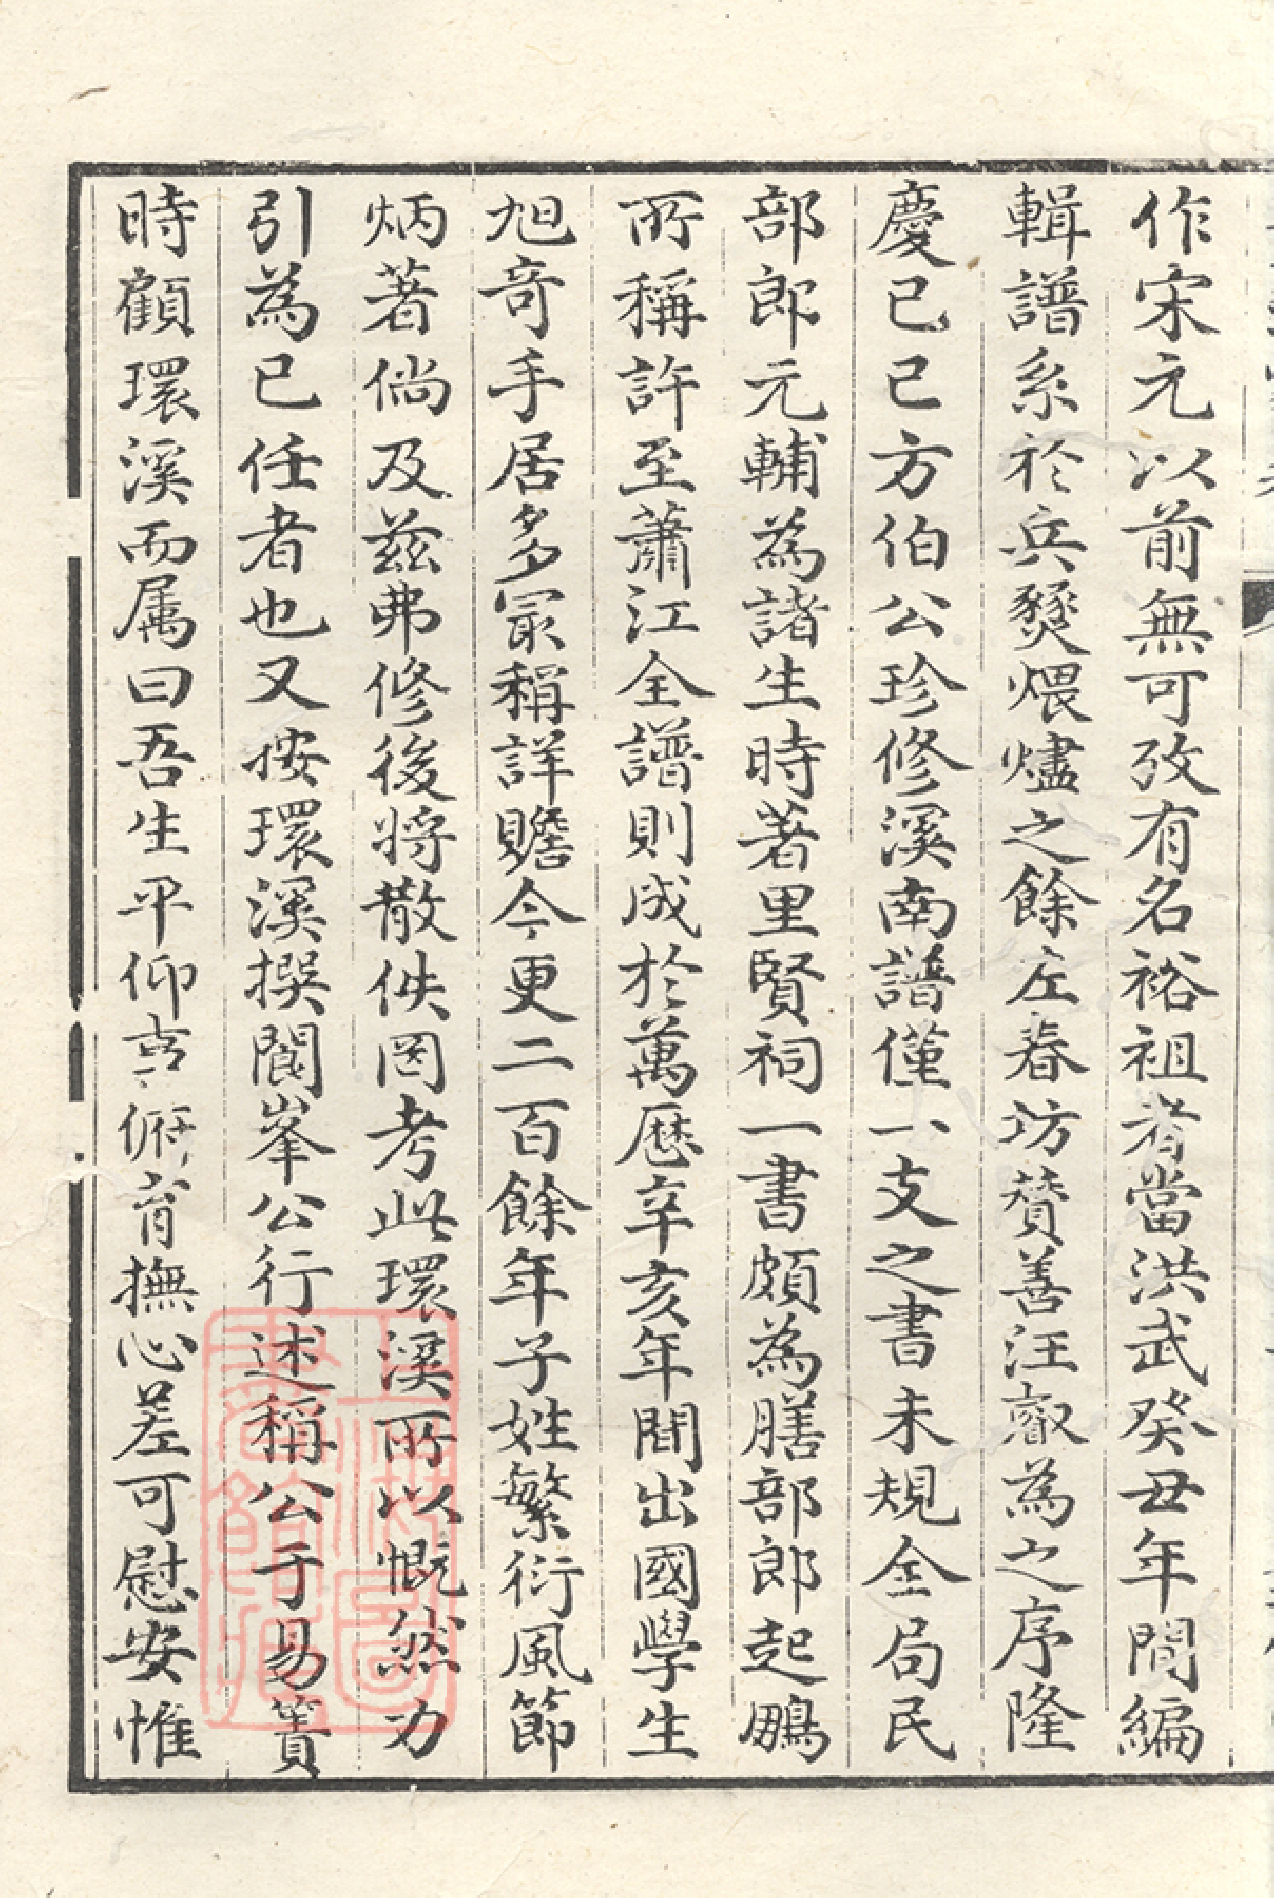 作宋元以前無可攷有名裕祖者當洪武癸丑年間編
輯譜系於兵燹煨燼之餘左春坊贊善汪叡為之序隆
慶己巳方伯公珍修溪南譜僅一支之書未規全局民
部郎元輔為諸生時著里賢祠一書頗為膳部郎起鵬
所稱許至蕭江全譜則成於萬歷辛亥年間出國學生
旭奇手居多冣稱詳贍今更二百餘年子姓繁衍風節
炳著倘及茲弗修後將散佚罔考此環溪所以慨然力
引為已任者也又按環溪撰閬峯公行述稱公于易簀
時顧環溪而属曰吾生平仰事俯育撫心差可慰安惟
上海圖書館藏